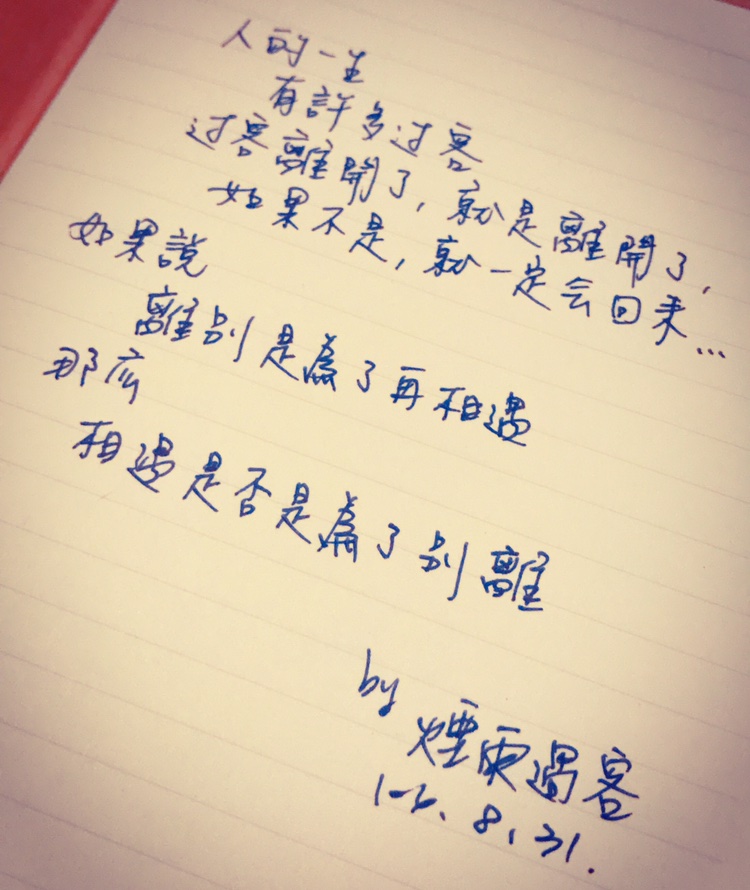 人的一生
有許多过客
过客離開了,就是離開了,
如果不是,就一定会回来...
如果說
離別是為了再相遇
那底
相遇是否是為了別離
by
煙雨過客
8.31.